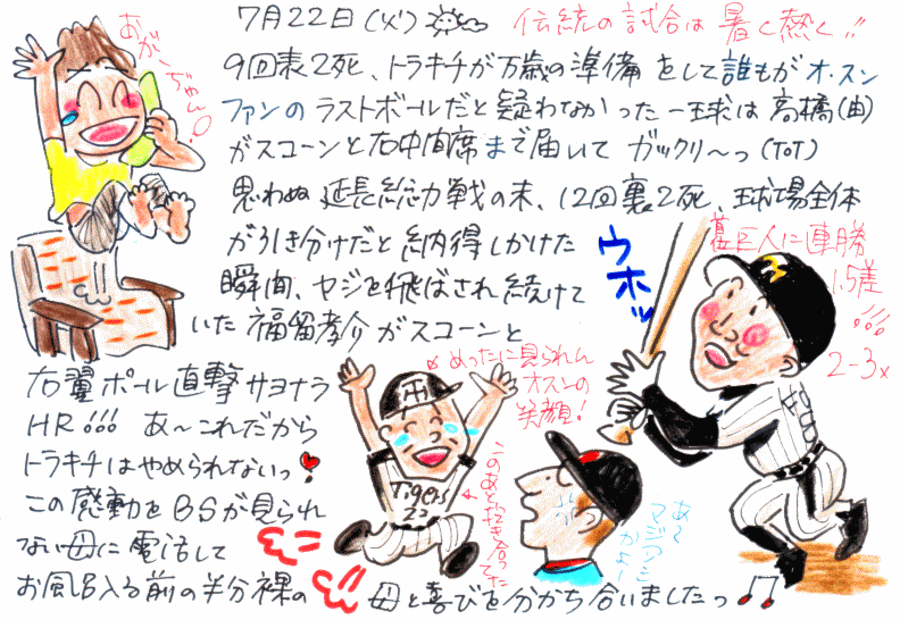 7月22日(火) 伝統の試合は暑く熱く!!
あがっ ぢゃん!
9回表2死、トラキチが万歳の準備をして誰もがオ・スン
ファンのラストボールだと疑わなかった一球は高橋(由)
がスコーンと右中間席まで届いてガックリ〜っ(ToT)
思わぬ延長総力戦の末、12回裏2死、球場全体
が引き分けだと納得しかけた
瞬間、ヤジを飛ばされ続けて
いた福留孝介がスコーンと
右翼ポール直撃サヨナラ
HR!!! あ〜これだから
トラキチはやめられないっ
この感動をBSが見られ
ない母に電話して
お風呂入る前の半分裸の
母と喜びを分かち合いましたっ
ウホッ
巨人に連勝
1.5差
!!!
2-3x
めったに見られん
オスンの
笑顔!
このあと抱き合ってた
Tigers
22
あ〜
マジっ
かよー